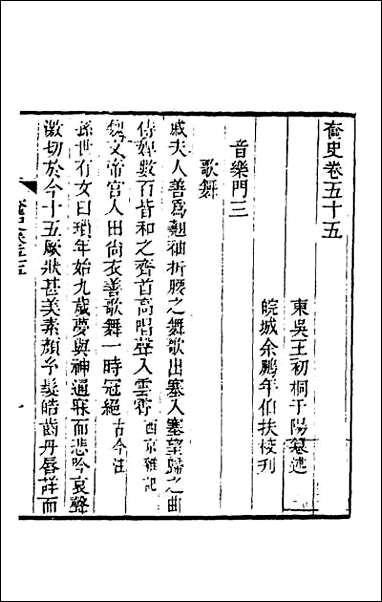 奩史卷五十五
東吳王初桐于陽纂述
皖城余鵬年伯扶校刋
音樂門三
歌舞
戚夫人善爲翹袖折腰之舞歌出塞入塞望歸之曲
侍婢數百皆和之齊首高唱聲入雲霄西京雜記
魏文帝宮人田尙衣善歌舞一時冠絕古今注
孫世有女曰瑣年始九歲夢與神通寐而悲吟哀聲
激切於今十五厥狀甚美素顏𤣥髮皓齒丹唇詳而